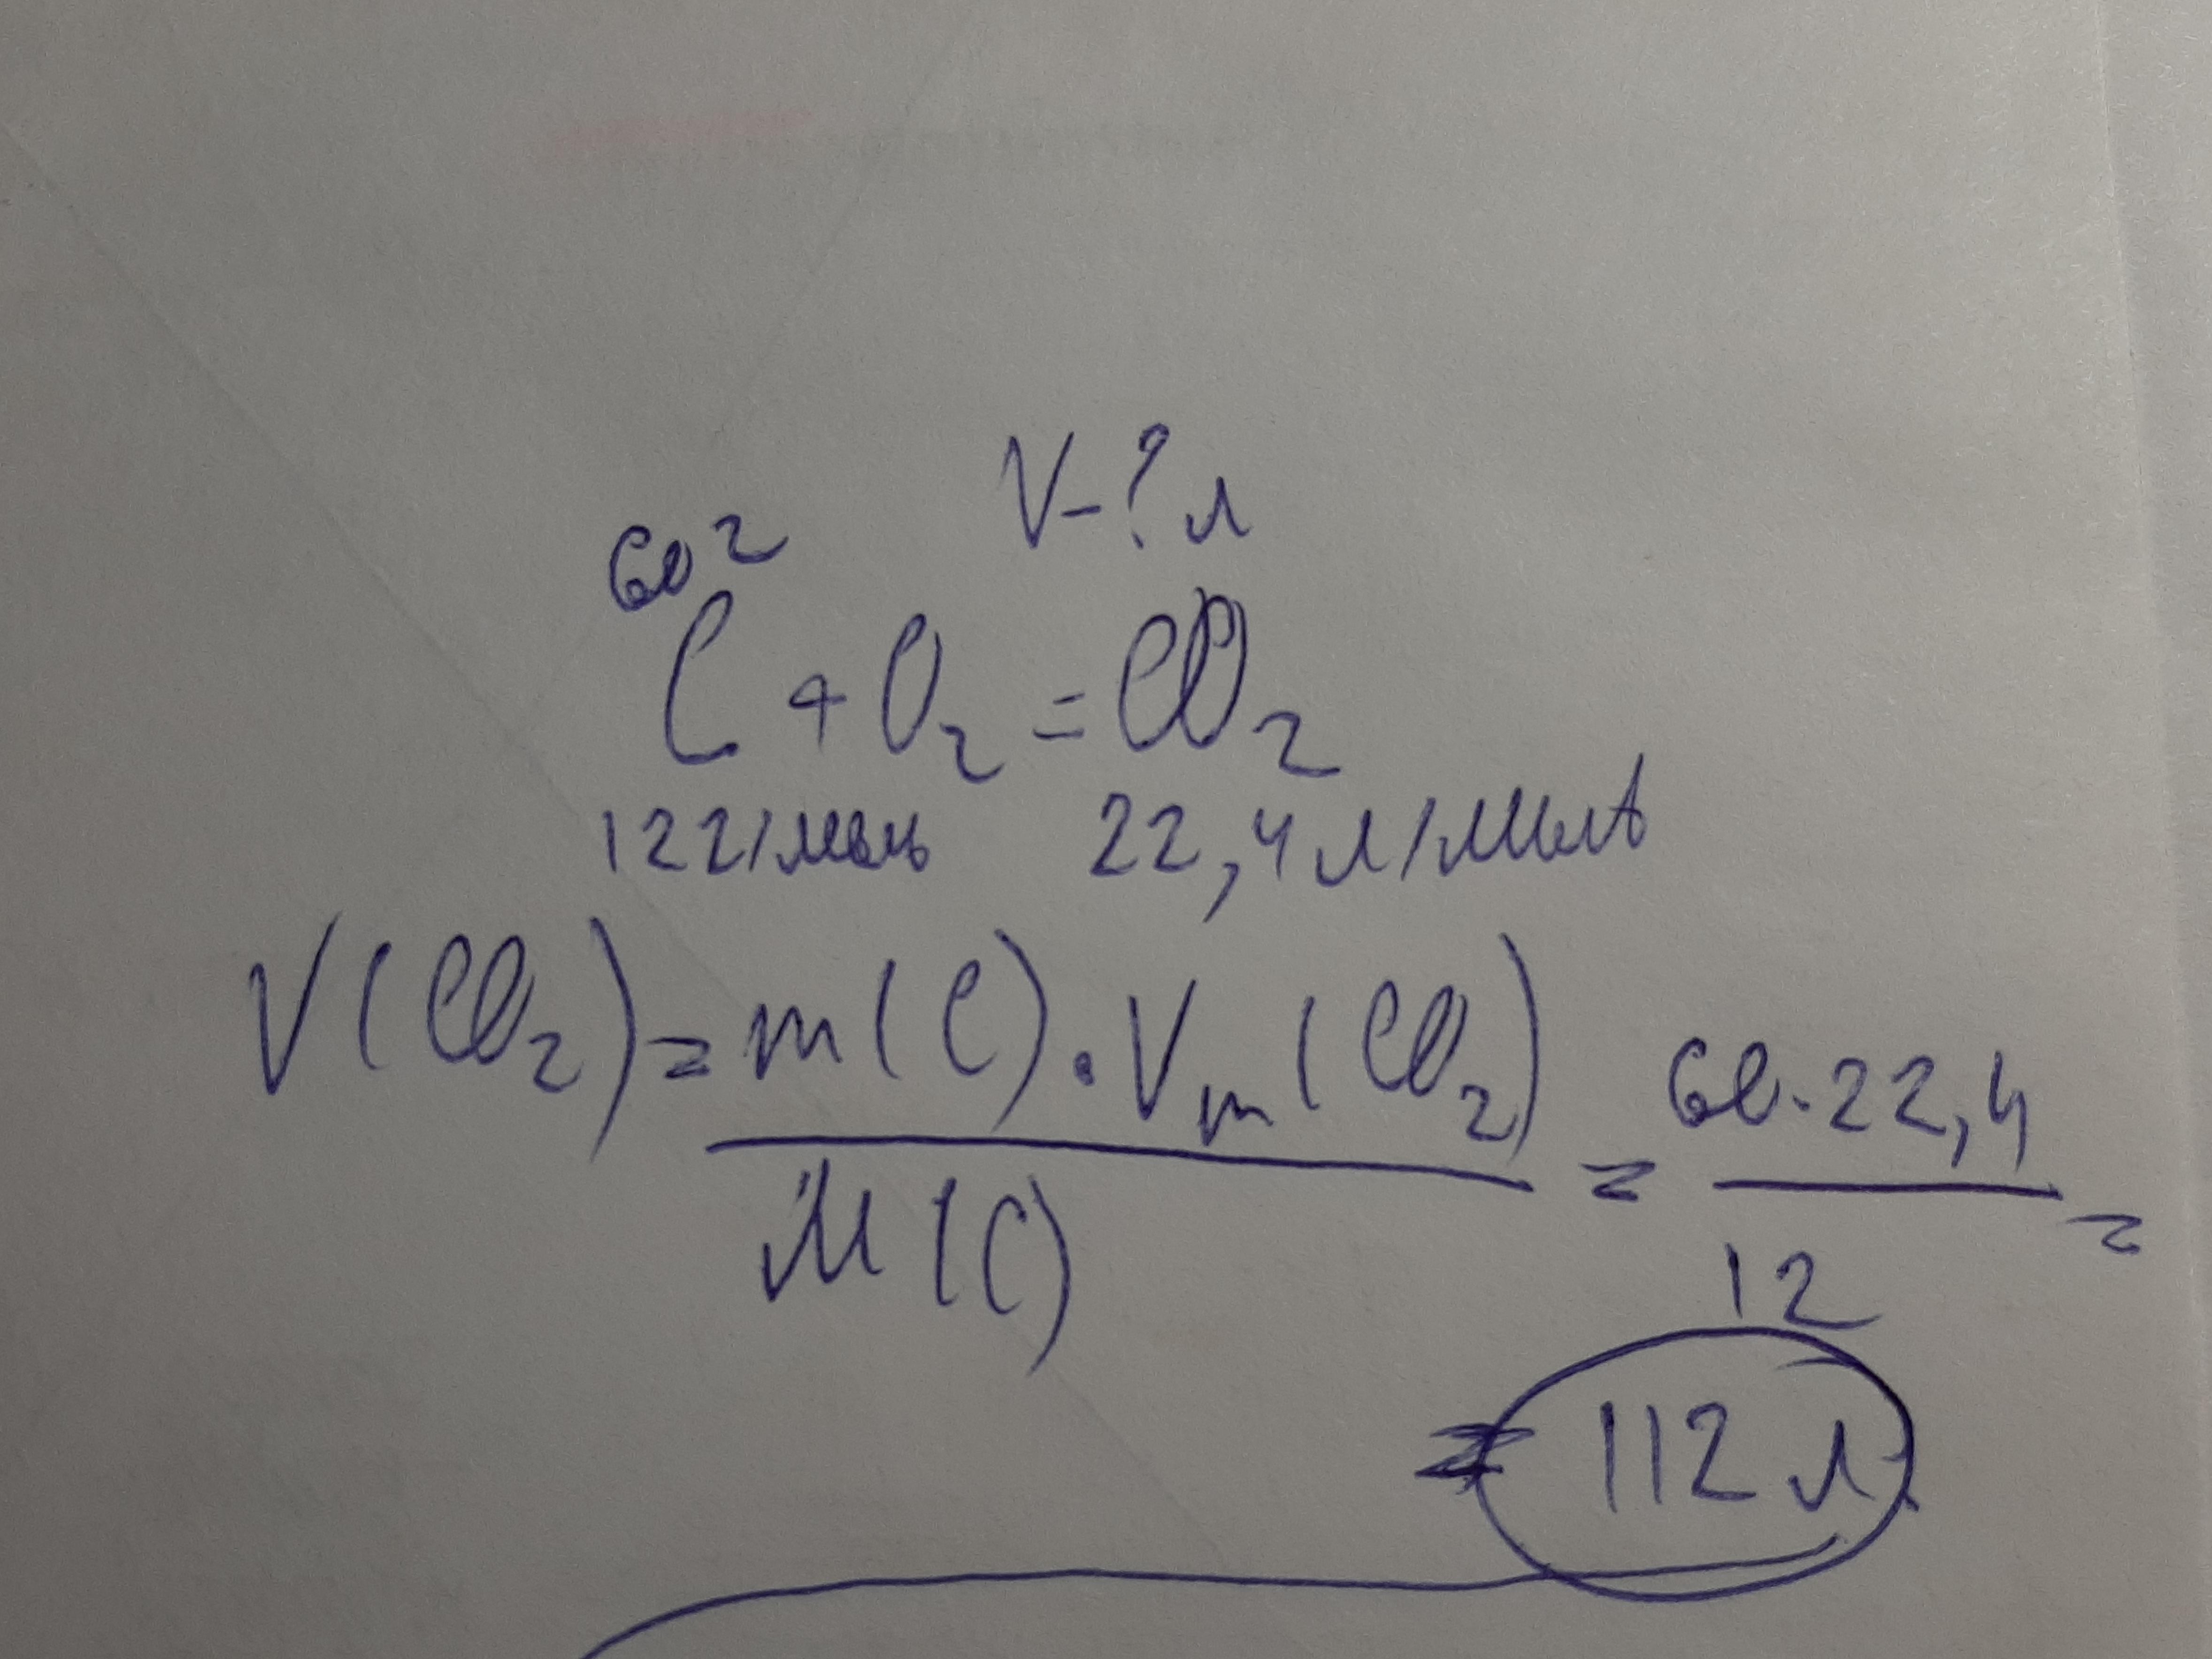 V-? л
60 г
C + O₂ = CO₂
12 г/моль 22,4 л/моль
V(CO₂) = m(C) · Vₘ(CO₂) / M(C) = 60 · 22,4 / 12 =
= 112 л